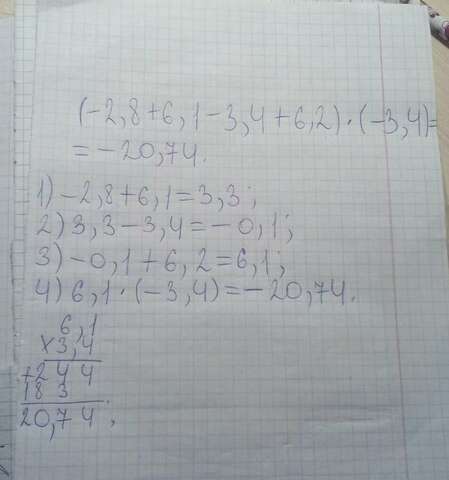 (-2,8+6,1-3,4+6,2)·(-3,4)=
=-20,74.
1)-2,8+6,1=3,3;
2)3,3-3,4=-0,1;
3)-0,1+6,2=6,1;
4)6,1·(-3,4)=-20,74.
6,1
×3,4
+244
183
20,74;